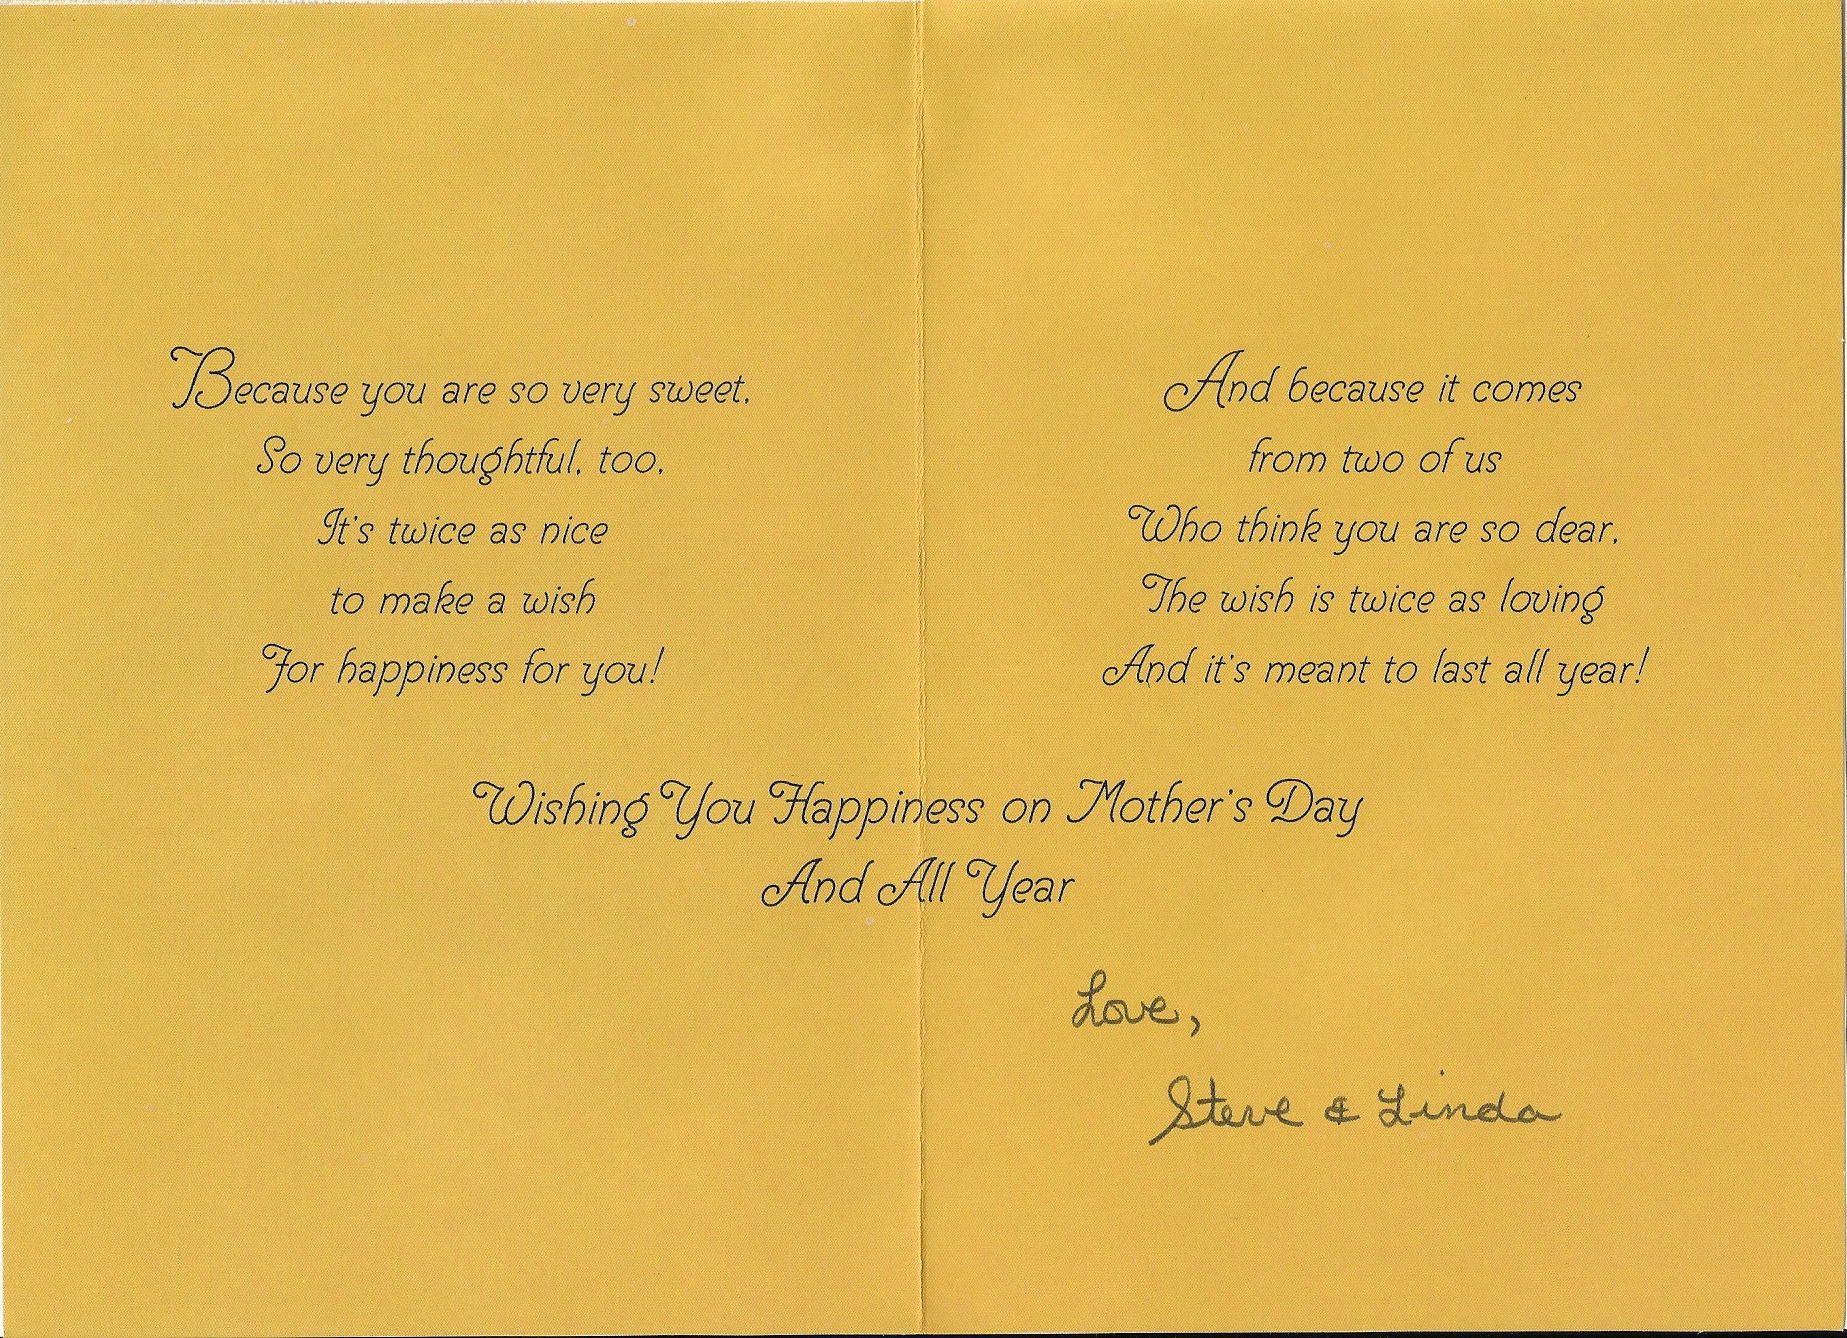 Because you are so very sweet,
So very thoughtful, too,
It's twice as nice
to make a wish
For happiness for you!
And because it comes
from two of us
Who think you are so dear,
The wish is twice as loving
And it's meant to last all year!
Wishing You Happiness on Mother's Day
And All Year
Love,
Steve & Linda